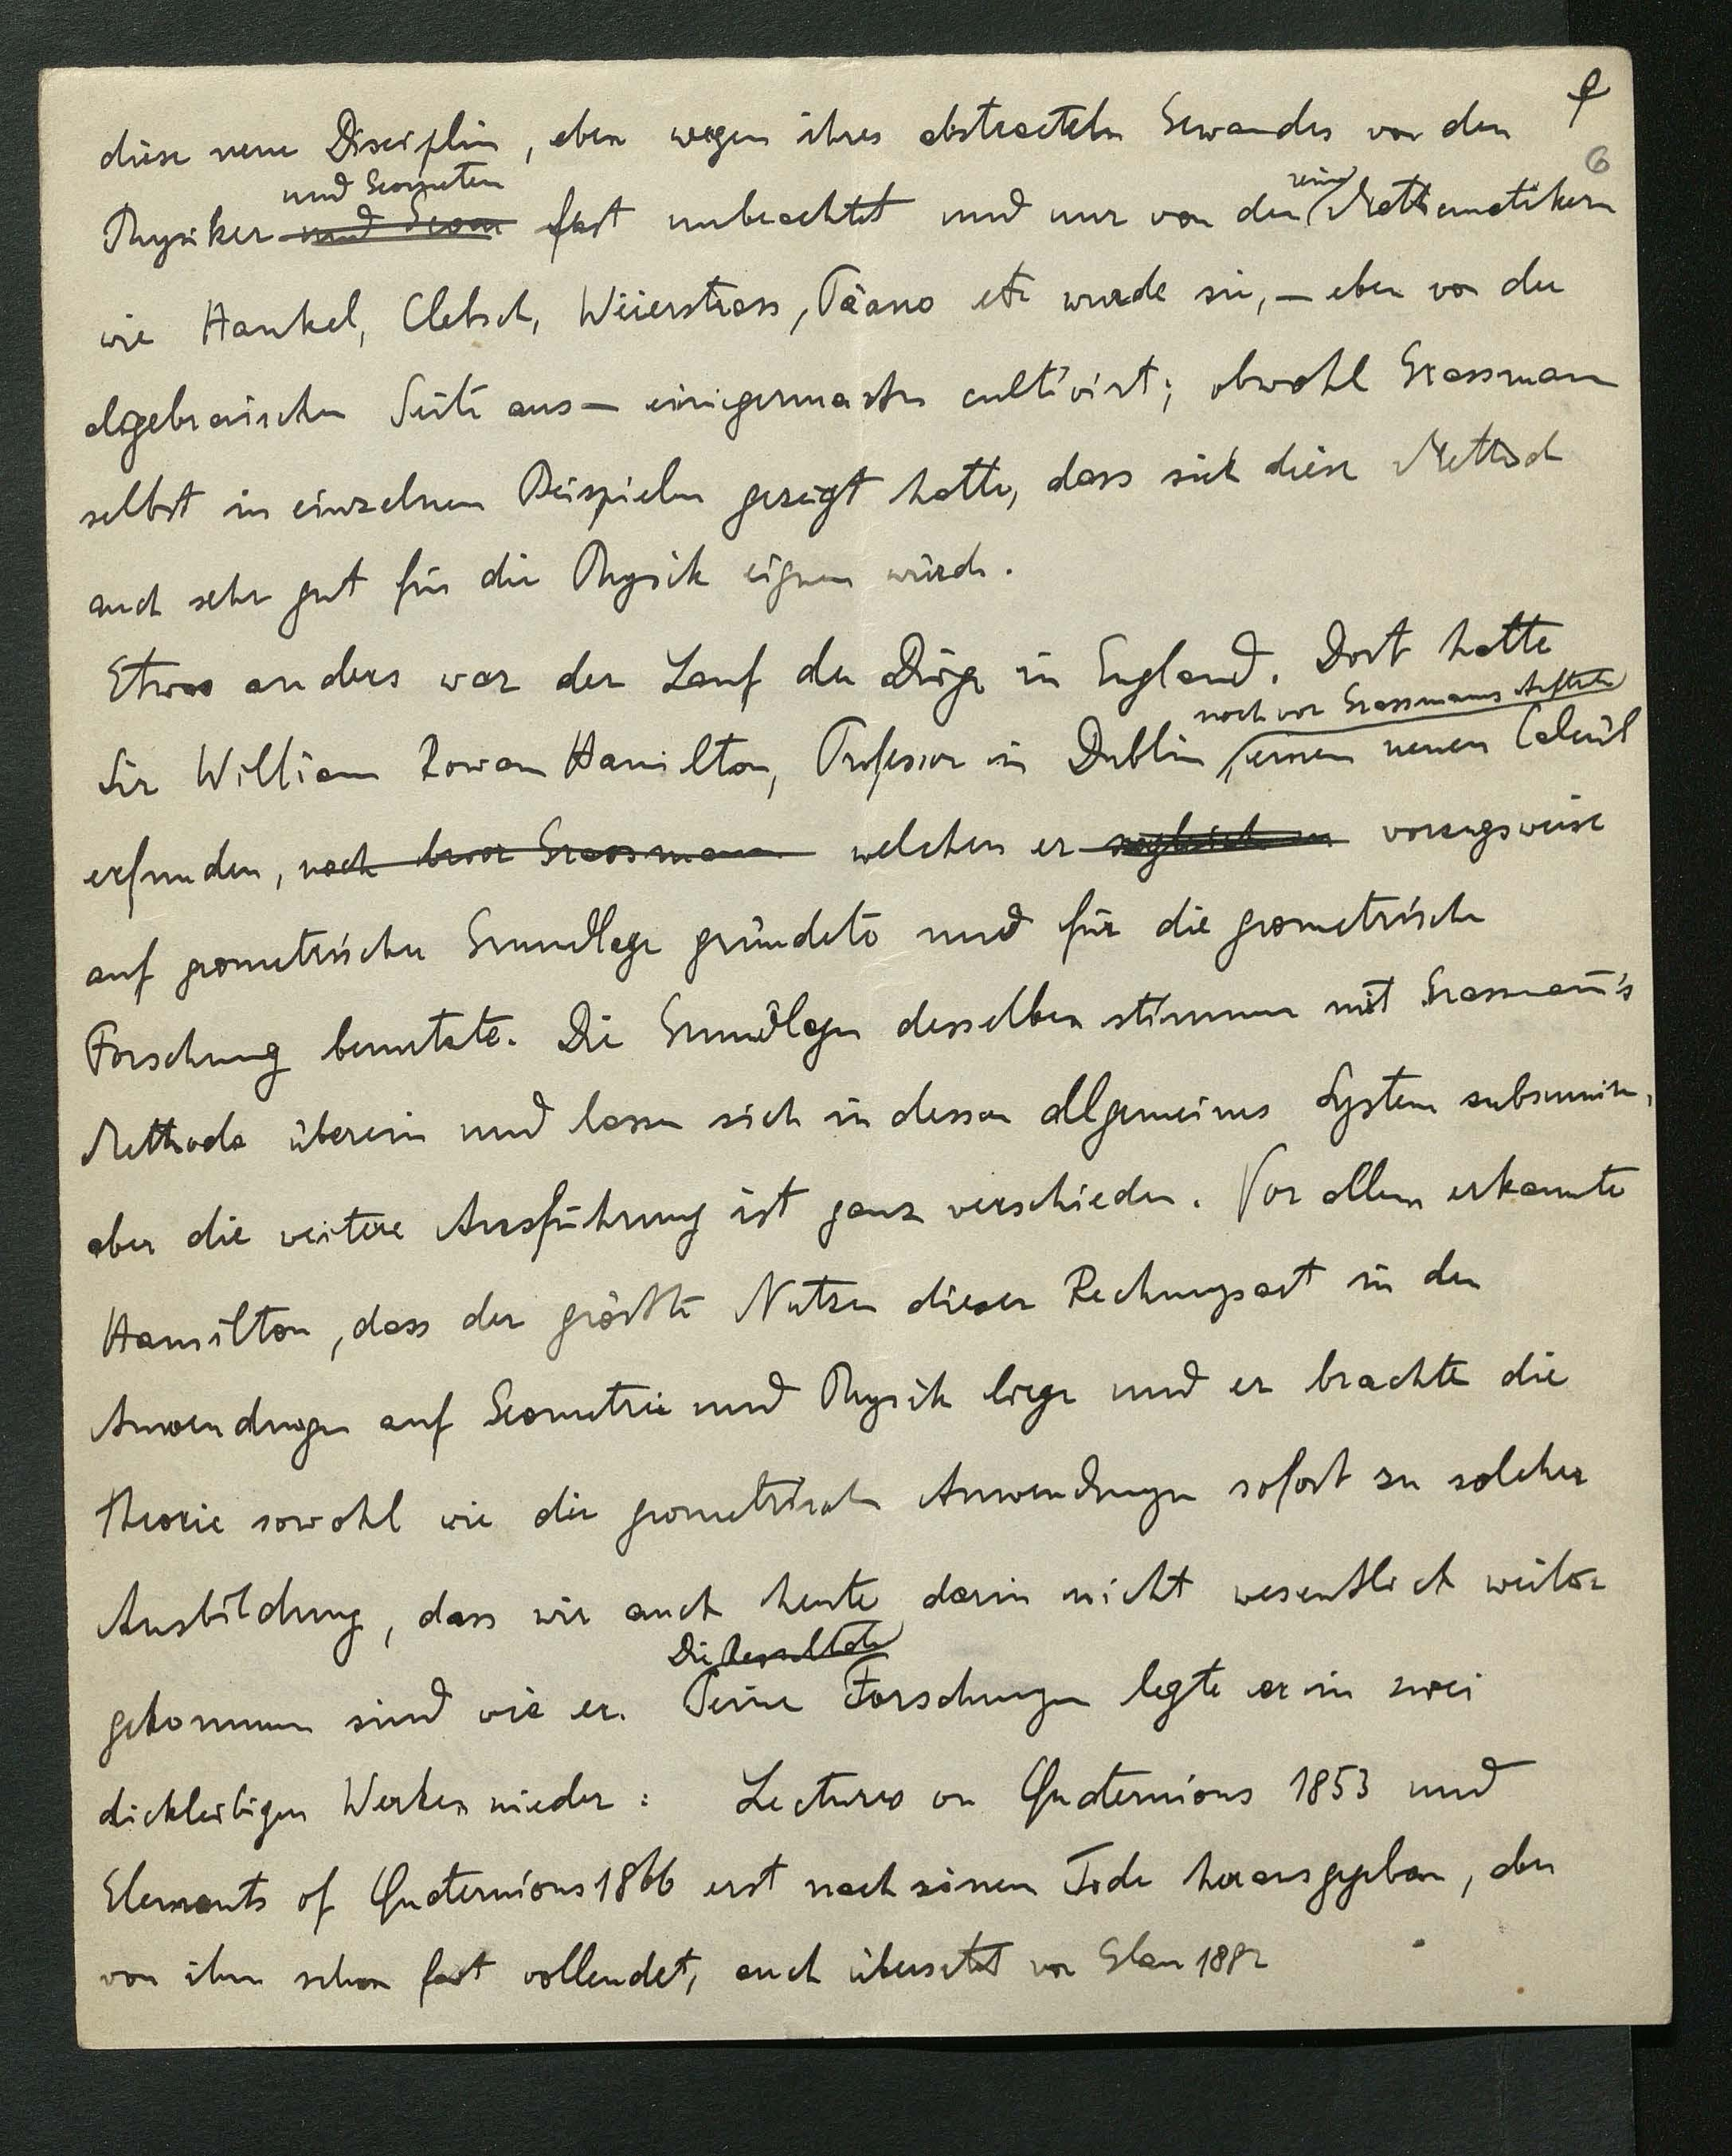 6
diese neue Disciplin, eben wegen ihres abstracteln Gewandes von den
und Geometern
reinen
Physiker und Geom fast unbeachtet und nur von den Mathematikern
wie Hankel, Clebsch, Weierstrass, Peano etc wurde sie, – eben von der
algebraischen Seite aus – einigermassen cultivirt; obwohl Grassmann
selbst in einzelnen Beispielen gezeigt hatte, dass sich diese Method
auch sehr gut für die Physik eignen würde.
Etwas anders war der Lauf der Dinge in England. Dort hatte
noch vor Grassmanns Auftreten
Sir William Rowan Hamilton, Professor in Dublin einen neuen Calcül
erfunden, noch bevor Grassmann welchen er sogleich vorzugsweise
auf geometrischer Grundlage gründete und für die geometrische
Forschung benutzte. Die Grundlagen desselben stimmen mit Grassmann's
Methode überein und lassen sich in dessen allgemeines System subsumiren,
aber die weitere Ausführung ist ganz verschieden. Vor allem erkannte
Hamilton, dass der grösste Nutzen dieser Rechnungsart in den
Anwendungen auf Geometrie und Physik liege und er brachte die
Theorie sowohl wie die geometrischen Anwendungen sofort zu solcher
Ausbildung, dass wir auch heute darin nicht wesentlich weiter
Die Resultate
gekommen sind wie er. Seine Forschungen legte er in zwei
dickleibigen Werken nieder: Lectures on Quaternions 1853 und
Elements of Quaternions 1866 erst nach seinem Tode herausgegeben, aber
von ihm schon fast vollendet, auch übersetzt von Glan 1882